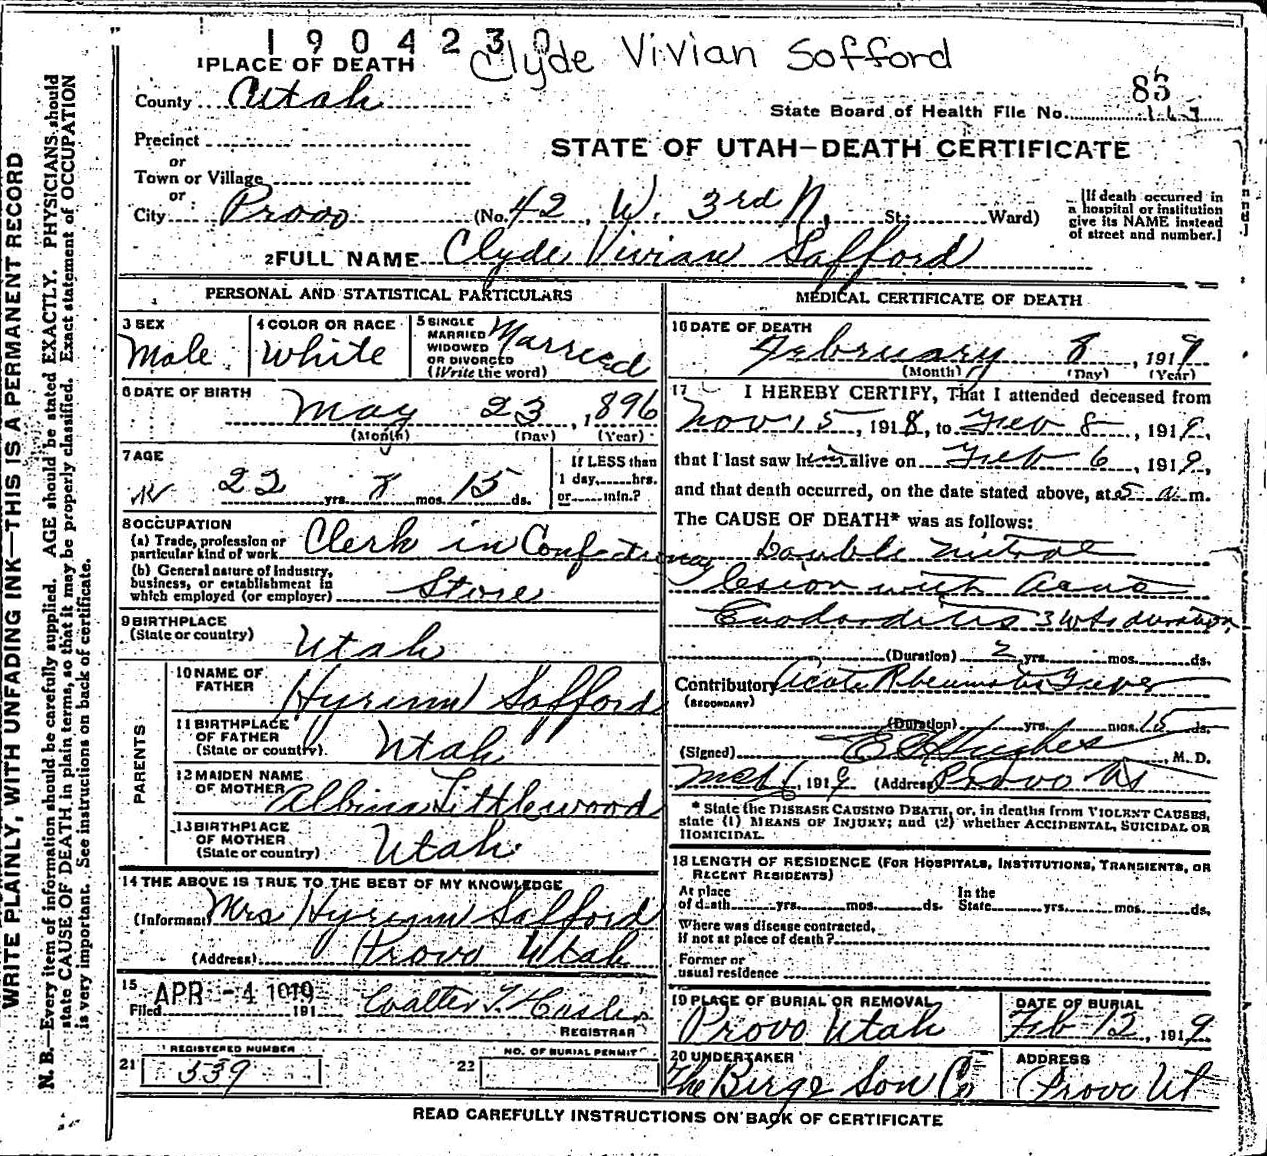 1904230
Clyde Vivian Safford
1 PLACE OF DEATH
County Utah
State Board of Health File No. 85
Precinct
STATE OF UTAH—DEATH CERTIFICATE
or
Town or Village
or
City Provo (No. 42, W. 3rd N. St; Ward)
[If death occurred in
a hospital or institution
give its NAME instead
of street and number.]
2 FULL NAME Clyde Vivian Safford
PERSONAL AND STATISTICAL PARTICULARS
3 SEX
Male
4 COLOR OR RACE
White
5 SINGLE
MARRIED
WIDOWED
OR DIVORCED
(Write the word)
Married
6 DATE OF BIRTH
May 23, 1896
(Month) (Day) (Year)
7 AGE
22 yrs. 8 mos. 15 ds.
If LESS than
1 day, hrs.
or min.?
8 OCCUPATION
(a) Trade, profession or
particular kind of work Clerk in Confectionary
(b) General nature of industry,
business, or establishment in
which employed (or employer) Store
9 BIRTHPLACE
(State or country) Utah
PARENTS
10 NAME OF
FATHER Hyrum Safford
11 BIRTHPLACE
OF FATHER
(State or country) Utah
12 MAIDEN NAME
OF MOTHER Albina Littlewood
13 BIRTHPLACE
OF MOTHER
(State or country) Utah
14 THE ABOVE IS TRUE TO THE BEST OF MY KNOWLEDGE
(Informant) Mrs Hyrum Safford
(Address) Provo Utah
15
Filed APR -4 1919 191
Walter T. Hasler
REGISTRAR
21 REGISTERED NUMBER
539
22 NO. OF BURIAL PERMIT
MEDICAL CERTIFICATE OF DEATH
16 DATE OF DEATH
February 8, 1919
(Month) (Day) (Year)
17 I HEREBY CERTIFY, That I attended deceased from
Nov 15, 1918, to Feb 8, 1919,
that I last saw him alive on Feb 6, 1919,
and that death occurred, on the date stated above, at 5 a. m.
The CAUSE OF DEATH* was as follows:
Double mitral
lesion with acute
Endocarditis 3 wks duration
(Duration) 2 yrs. mos. ds.
Contributory Acute Rheumatic Fever
(SECONDARY)
(Duration) yrs. mos. 15 ds.
(Signed) E G Hughes, M. D.
1919 (Address) Provo Ut
* State the DISEASE CAUSING DEATH, or, in deaths from VIOLENT CAUSES,
state (1) MEANS OF INJURY; and (2) whether ACCIDENTAL, SUICIDAL OR
HOMICIDAL.
18 LENGTH OF RESIDENCE (FOR HOSPITALS, INSTITUTIONS, TRANSIENTS, OR
RECENT RESIDENTS)
At place
of death yrs. mos. ds.
In the
State yrs. mos. ds.
Where was disease contracted,
if not at place of death?
Former or
usual residence
19 PLACE OF BURIAL OR REMOVAL
Provo Utah
DATE OF BURIAL
Feb 12, 1919
20 UNDERTAKER
The Berg & Son Co
ADDRESS
Provo Ut
READ CAREFULLY INSTRUCTIONS ON BACK OF CERTIFICATE
WRITE PLAINLY, WITH UNFADING INK—THIS IS A PERMANENT RECORD
N. B.—Every item of information should be carefully supplied. AGE should be stated EXACTLY. PHYSICIANS should
state CAUSE OF DEATH in plain terms, so that it may be properly classified. Exact statement of OCCUPATION
is very important. See instructions on back of certificate.